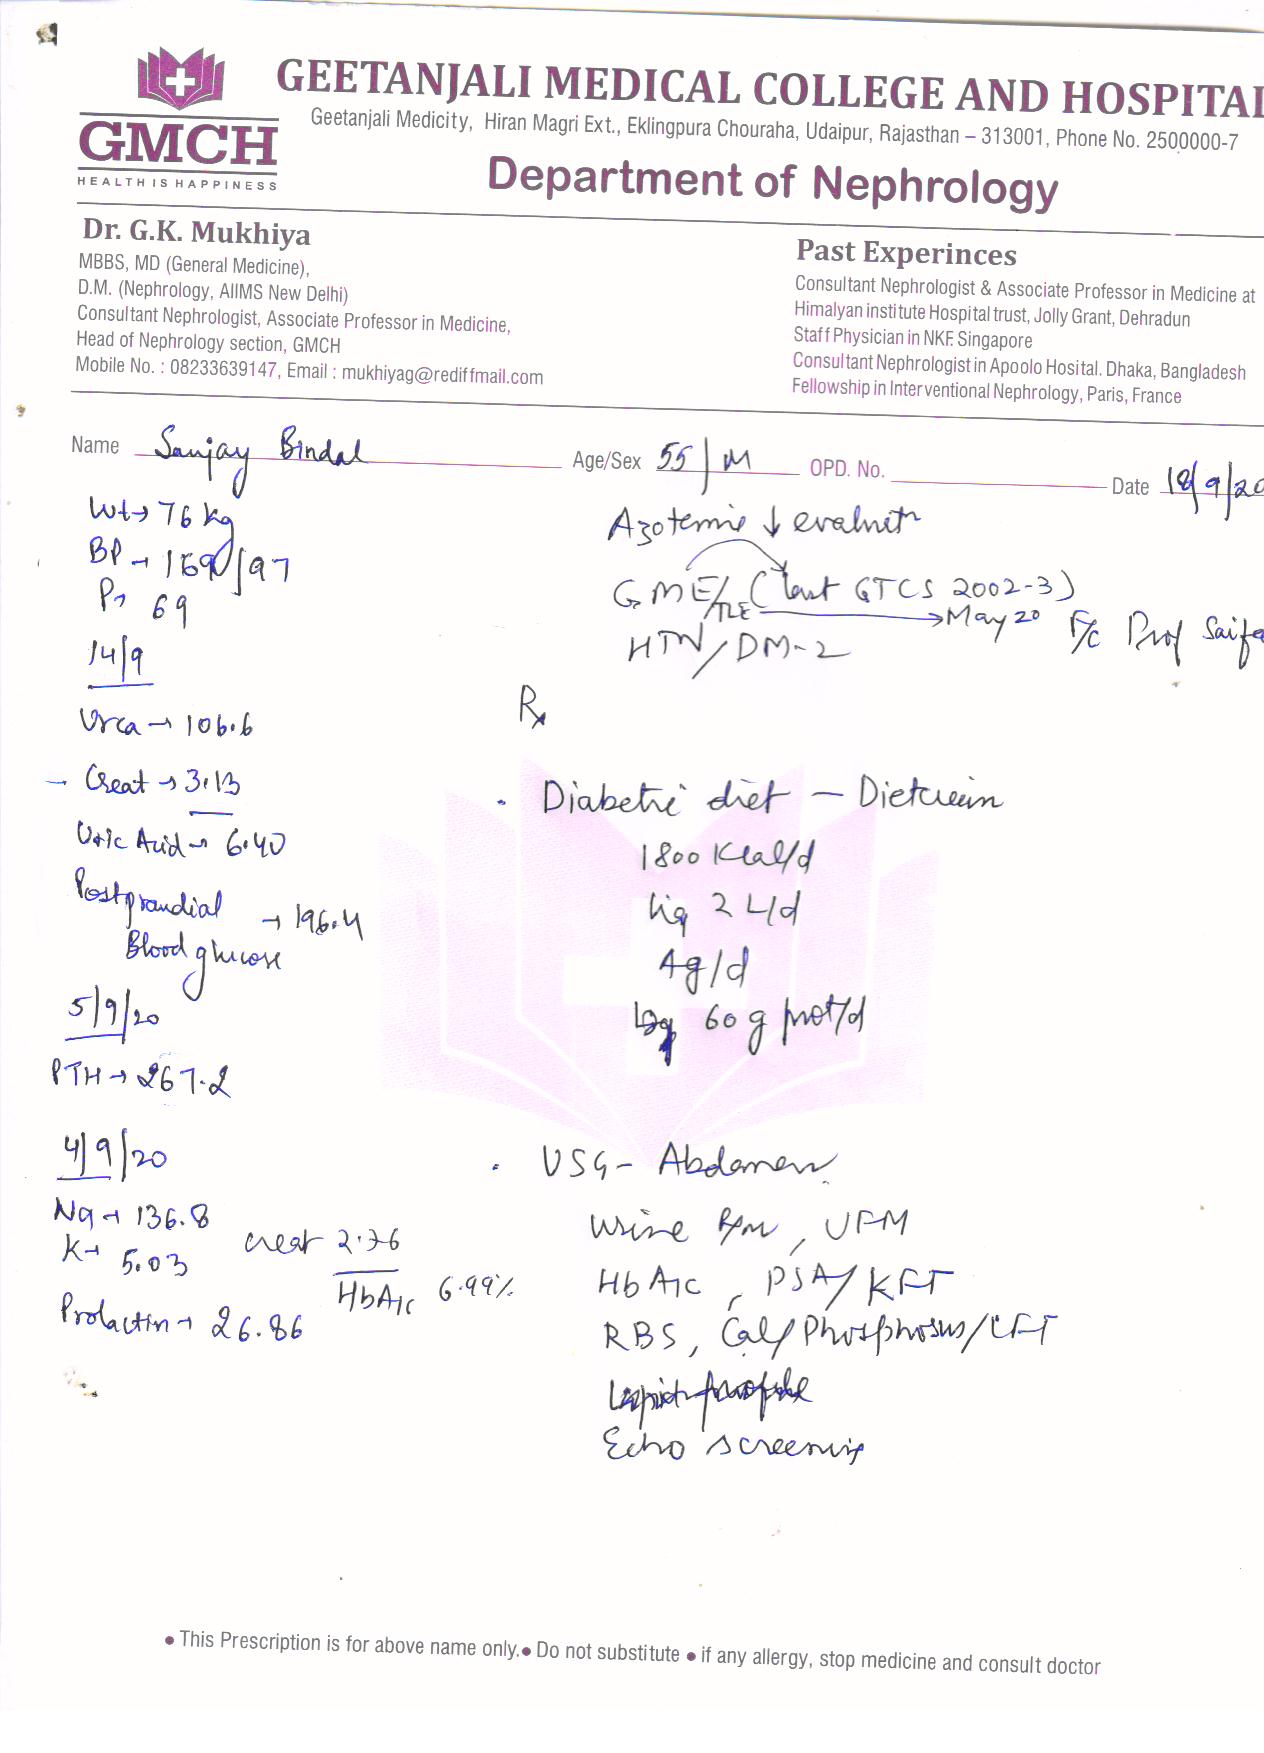 GEETANJALI MEDICAL COLLEGE AND HOSPITAL
Geetanjali Medicity, Hiran Magri Ext., Eklingpura Chouraha, Udaipur, Rajasthan – 313001, Phone No. 2500000-7
GMCH
HEALTH IS HAPPINESS
Department of Nephrology
Dr. G.K. Mukhiya
MBBS, MD (General Medicine),
D.M. (Nephrology, AIIMS New Delhi)
Consultant Nephrologist, Associate Professor in Medicine,
Head of Nephrology section, GMCH
Mobile No. : 08233639147, Email : mukhiyag@rediffmail.com
Past Experinces
Consultant Nephrologist & Associate Professor in Medicine at
Himalyan institute Hospital trust, Jolly Grant, Dehradun
Staff Physician in NKF. Singapore
Consultant Nephrologist in Apoolo Hosital. Dhaka, Bangladesh
Fellowship in Interventional Nephrology, Paris, France
Name Sanjay Bindal Age/Sex 55/M OPD. No. Date 18/9/20
Wt → 76 kg
BP → /97
P → 69
14/9
Urea → 106.6
- Creat → 3.13
Uric Acid → 6.40
Postprandial → 196.4
Blood glucose
5/9/20
PTH → 267.2
4/9/20
Na → 136.8
K → 5.03
creat 2.76
HbA1c 6.99%
Prolactin → 26.86
Azotemia ↓ evaluat
GME/TLE (last GTCS 2002-3)
→ May 20 F/C Prof
HTN/DM-2
Rx
. Diabetic diet –
1800 Kcal/d
liq 2 L/d
4g/d
60 g prot/d
. USG - Abdomen
Urine R/M, UPM
HbA1c, PSA/KFT
RBS, Cal/Phosphorus/LFT
Lipid profile
Echo screening
• This Prescription is for above name only. • Do not substitute • if any allergy, stop medicine and consult doctor